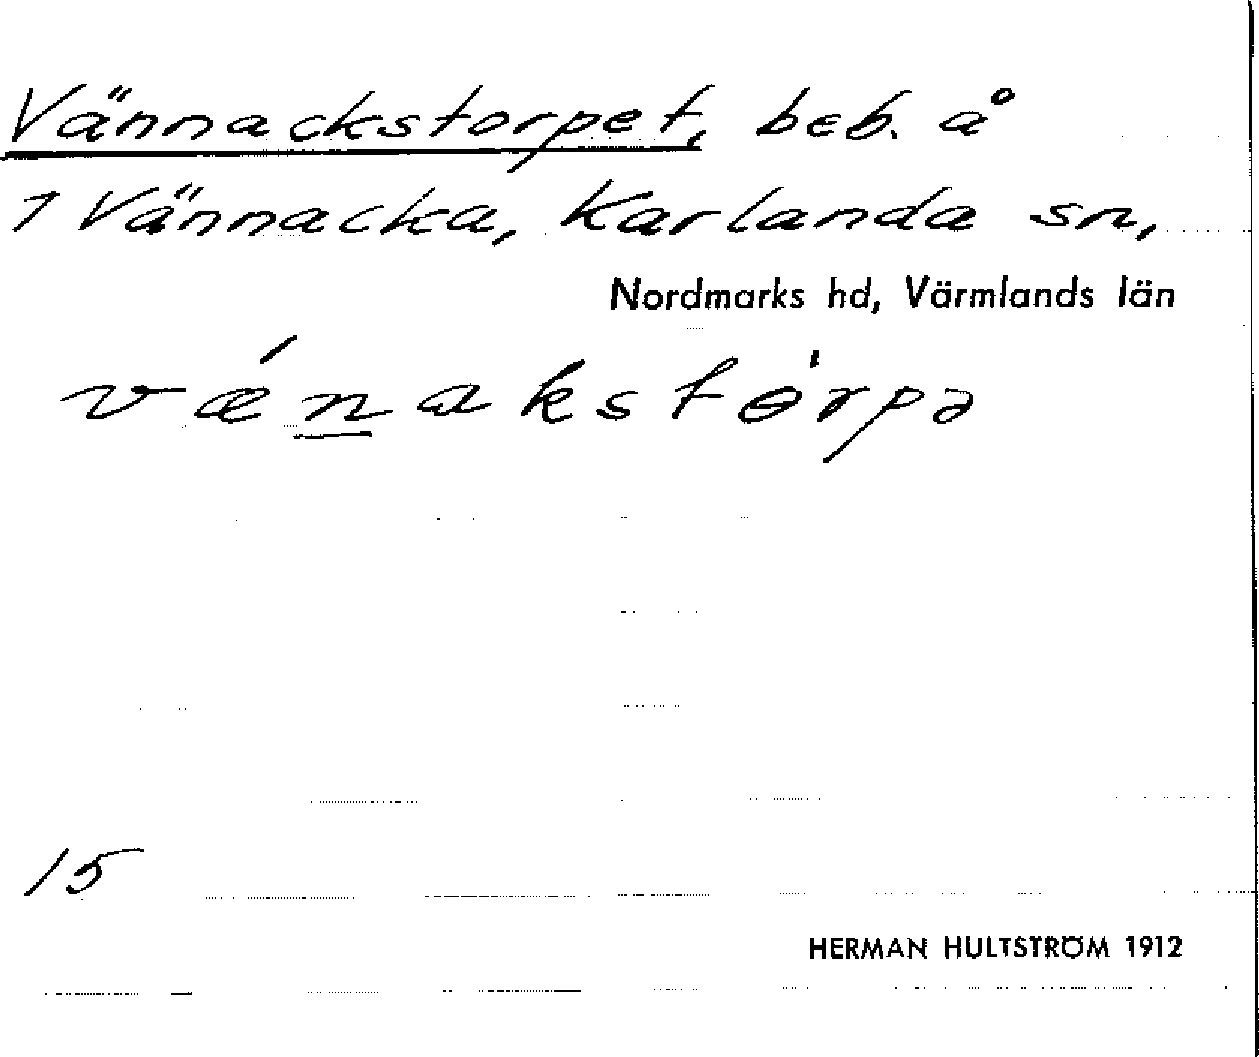 Vännackstorpet, beb. å
1 Vännacka, Karlanda sn,
Nordmarks hd, Värmlands län
væ´n̲akstɵ`rpə
15
HERMAN HULTSTRÖM 1912